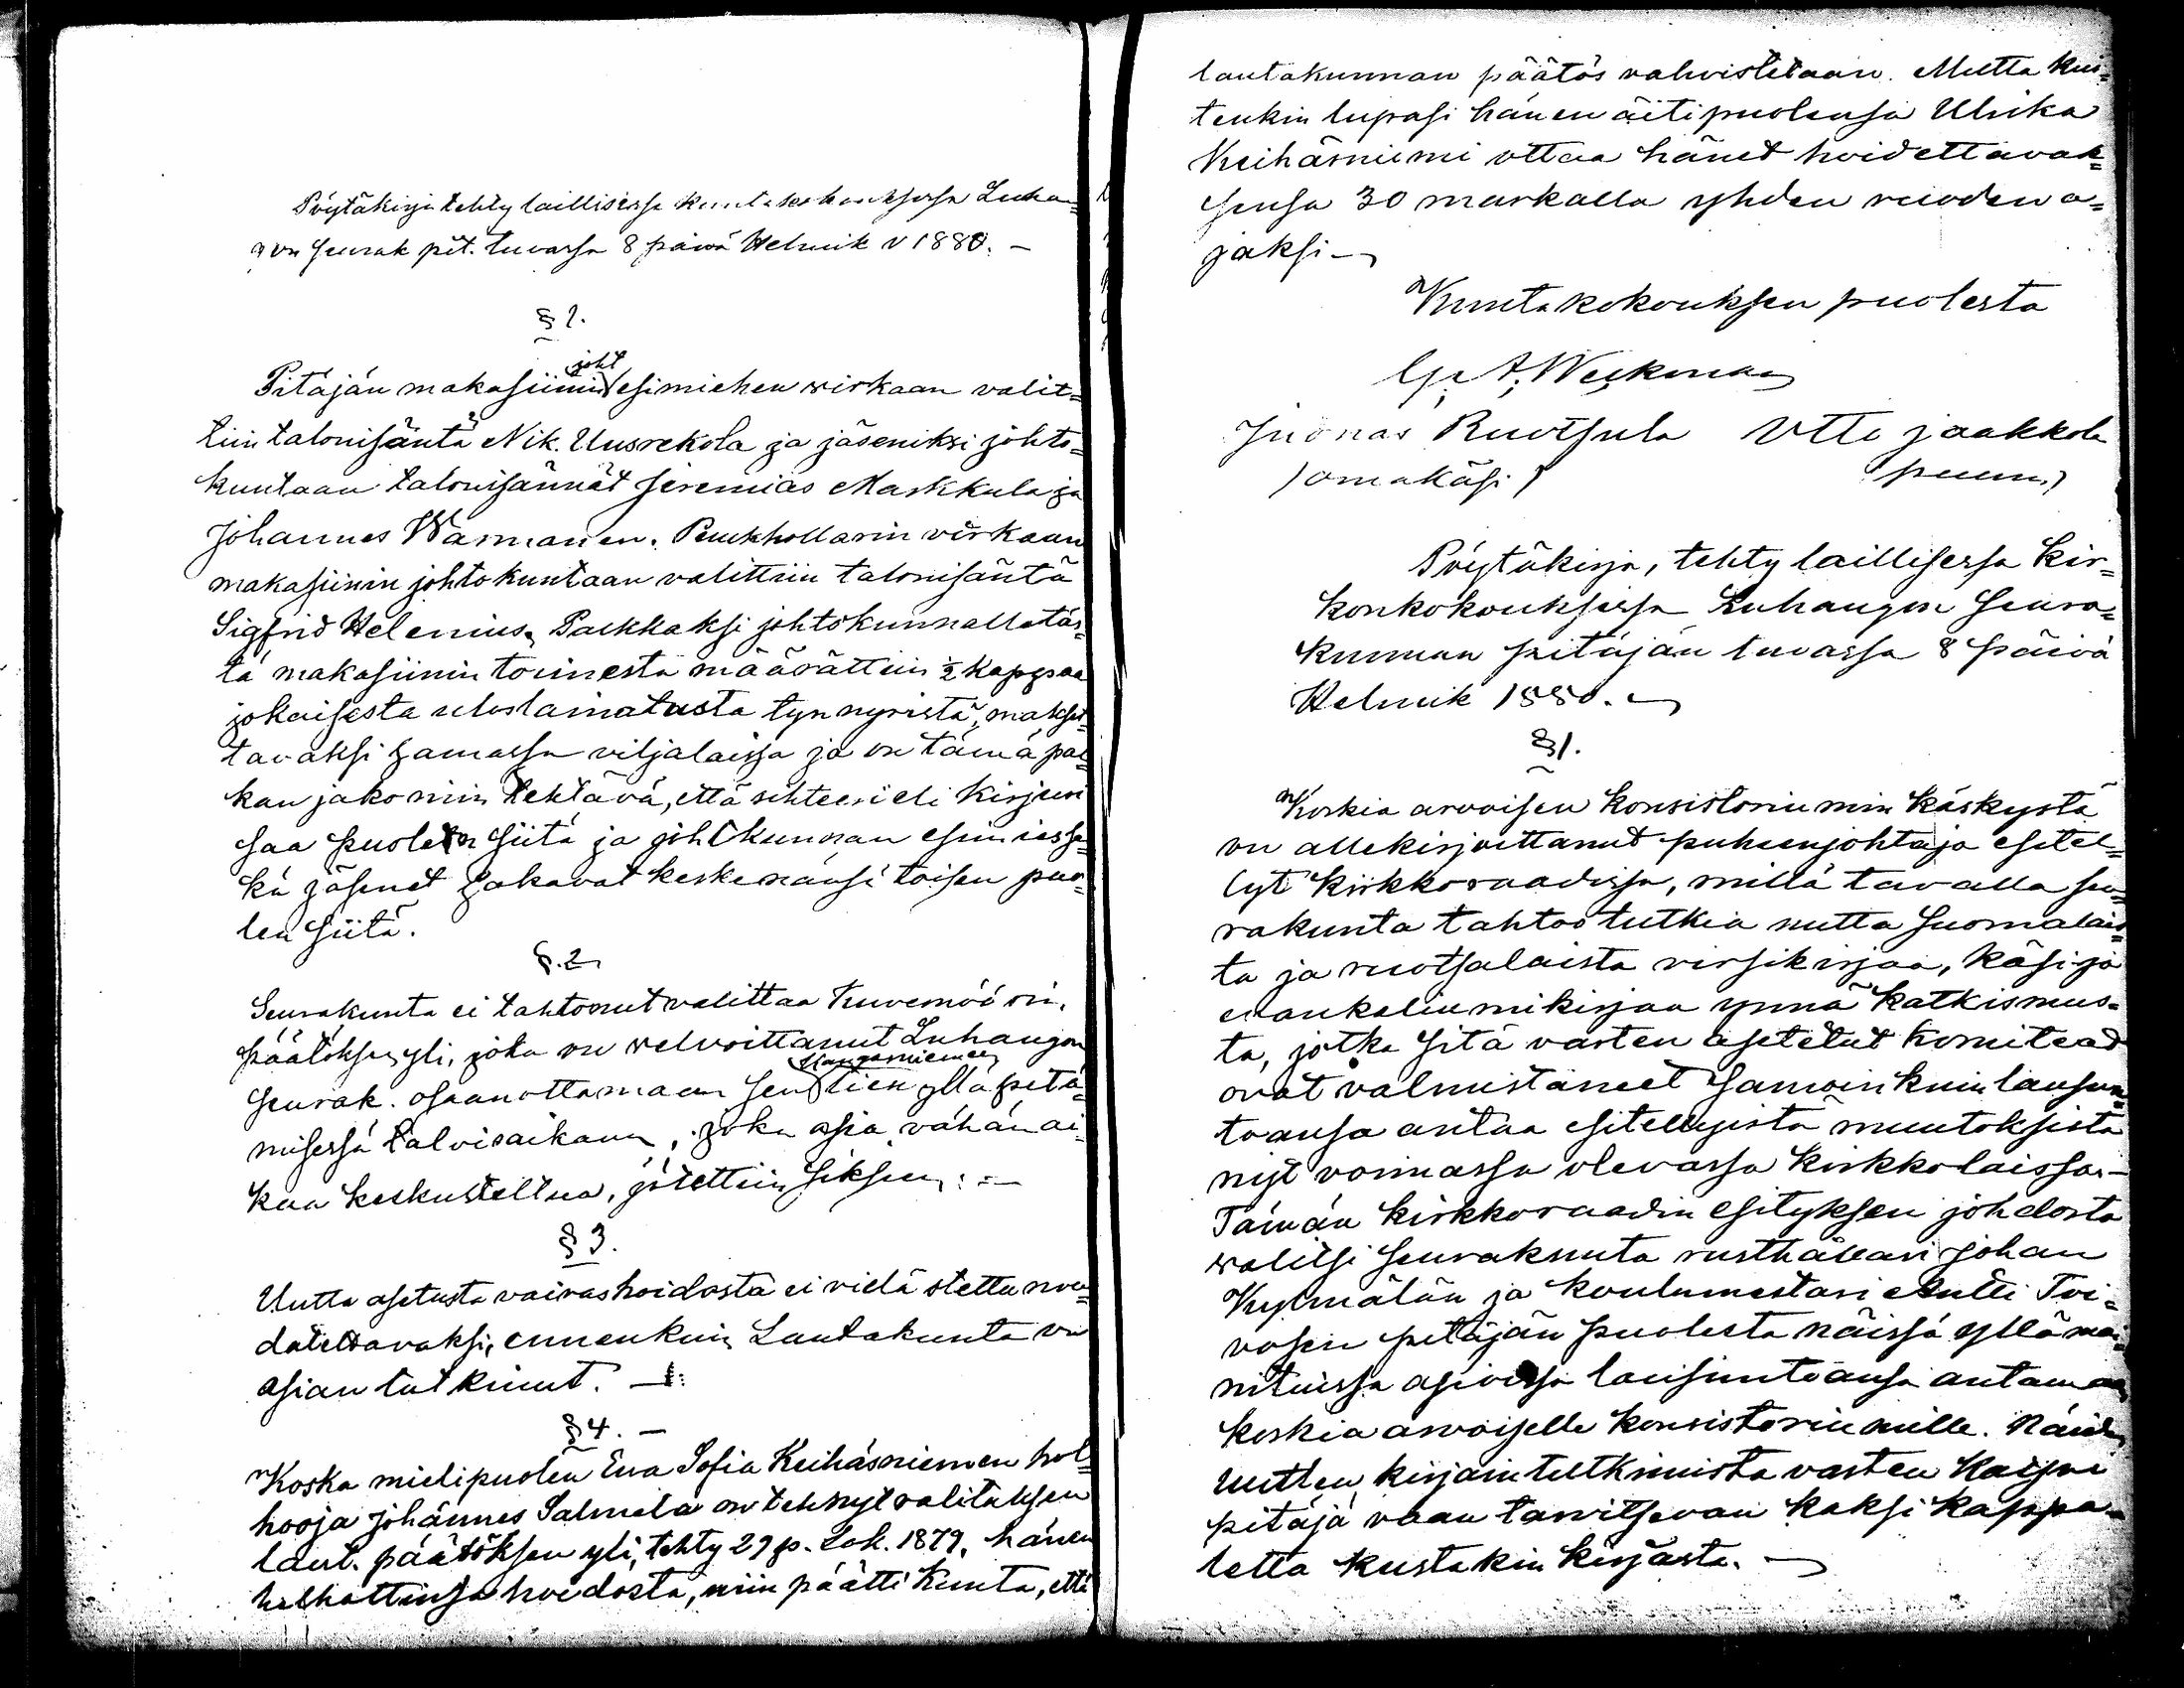 Pöytäkirja tehty laillisessa kuntakokouksessa Luhan=
gon seurak pit. tuvassa 8 päivä Helmik v 1880. -
§ 1.
Pitäjän makasiinin joht esimiehen wirkaan valit=
tiin talonisäntä Nik. Uusrekola ja jäseniksi johto=
kuntaan talonisännät Jeremias Markkula ja
Johannes Warmanen. Penkhollarin virkaan
makasiinin johtokuntaan valittiin talonisäntä
Sigfrid Helenius. Palkkaksi johtokunnalle täs=
tä makasiinin toimesta määrättiin ½ kappaa
jokaisesta uloslainatusta tynnyristä, makset=
tavaksi samassa viljalaissa ja on tämä pal=
kan jako niin tehtävä, että sihteeri eli kirjuri
saa puolen siitä ja johtkunnan esimies se=
kä jäsenet jakavat keskenänsä toisen puo=
len siitä.
§. 2
Seurakunta ei tahtonut valittaa Kuvernöörin,
päätöksen yli, joka on welvoittanut Luhangon
seurak. osaanottamaan sen Kangasniemen tien ylläpitä=
misessä talvisaikana, joka asia, vähän ai=
kaa keskusteltua, jätettiin siksen: -
§ 3.
Uutta asetusta vaivashoidosta ei vielä otettu nou=
datettavaksi, ennenkuin Lautakunta on
asian tutkinut. -
§ 4. -
Koska mielipuolen Eva Sofia Keihäsniemen hol=
hooja Johannes Salmela on tehnyt valituksen
laut. päätöksen yli, tehty 29 p. Lok. 1879, hänen
holhottinsa hoidosta, niin päätti Kunta, että
lautakunnan päätös vahvistetaan. Mutta kui=
tenkin lupasi hänen äitipuolensa Ulrika
Keihäsniemi ottaa hänet hoidettavak=
sensa 30 markalla yhden vuoden a=
jaksi -
Kuntakokouksen puolesta
G. A. Weckman
Juonas Ruotsula Otto Jaakkola
(omakäsi) puum.)
Pöytäkirja, tehty laillisessa kir=
konkokouksessa Luhangon seura=
kunnan pitäjän tuvassa 8 päivä
Helmik 1880. -
§ 1.
Korkia arvoisen konsistoriumin käskystä
on allekirjoittanut puheenjohtaja esitel=
lyt kirkkoraadissa, millä tavalla seu=
rakunta tahtoo tutkia uutta suomalais=
ta ja ruotsalaista virsikirjaa, käsi ja
evankeliumikirjaa ynnä katkismus=
ta, jotka sitä varten asetetut komitead
ovat valmistaneet samoin kuin lausun=
toansa antaa esitellyistä muutoksista
nyt voimassa olevassa kirkkolaissa. -
Tämän kirkkoraadin esityksen johdosta
walitsi seurakunta rusthållari Johan
Kylmälän ja koulumestari Antti Toi=
vosen pitäjän puolesta näissä yllä mai=
nituissa asioissa lausuntoansa antamaan
korkia arvoiselle konsistoriumille. Näiden
uutten kirjain tutkimista varten kaipai
pitäjä vaan tarvitsevan kaksi kappa=
letta kustakin kirjasta. -